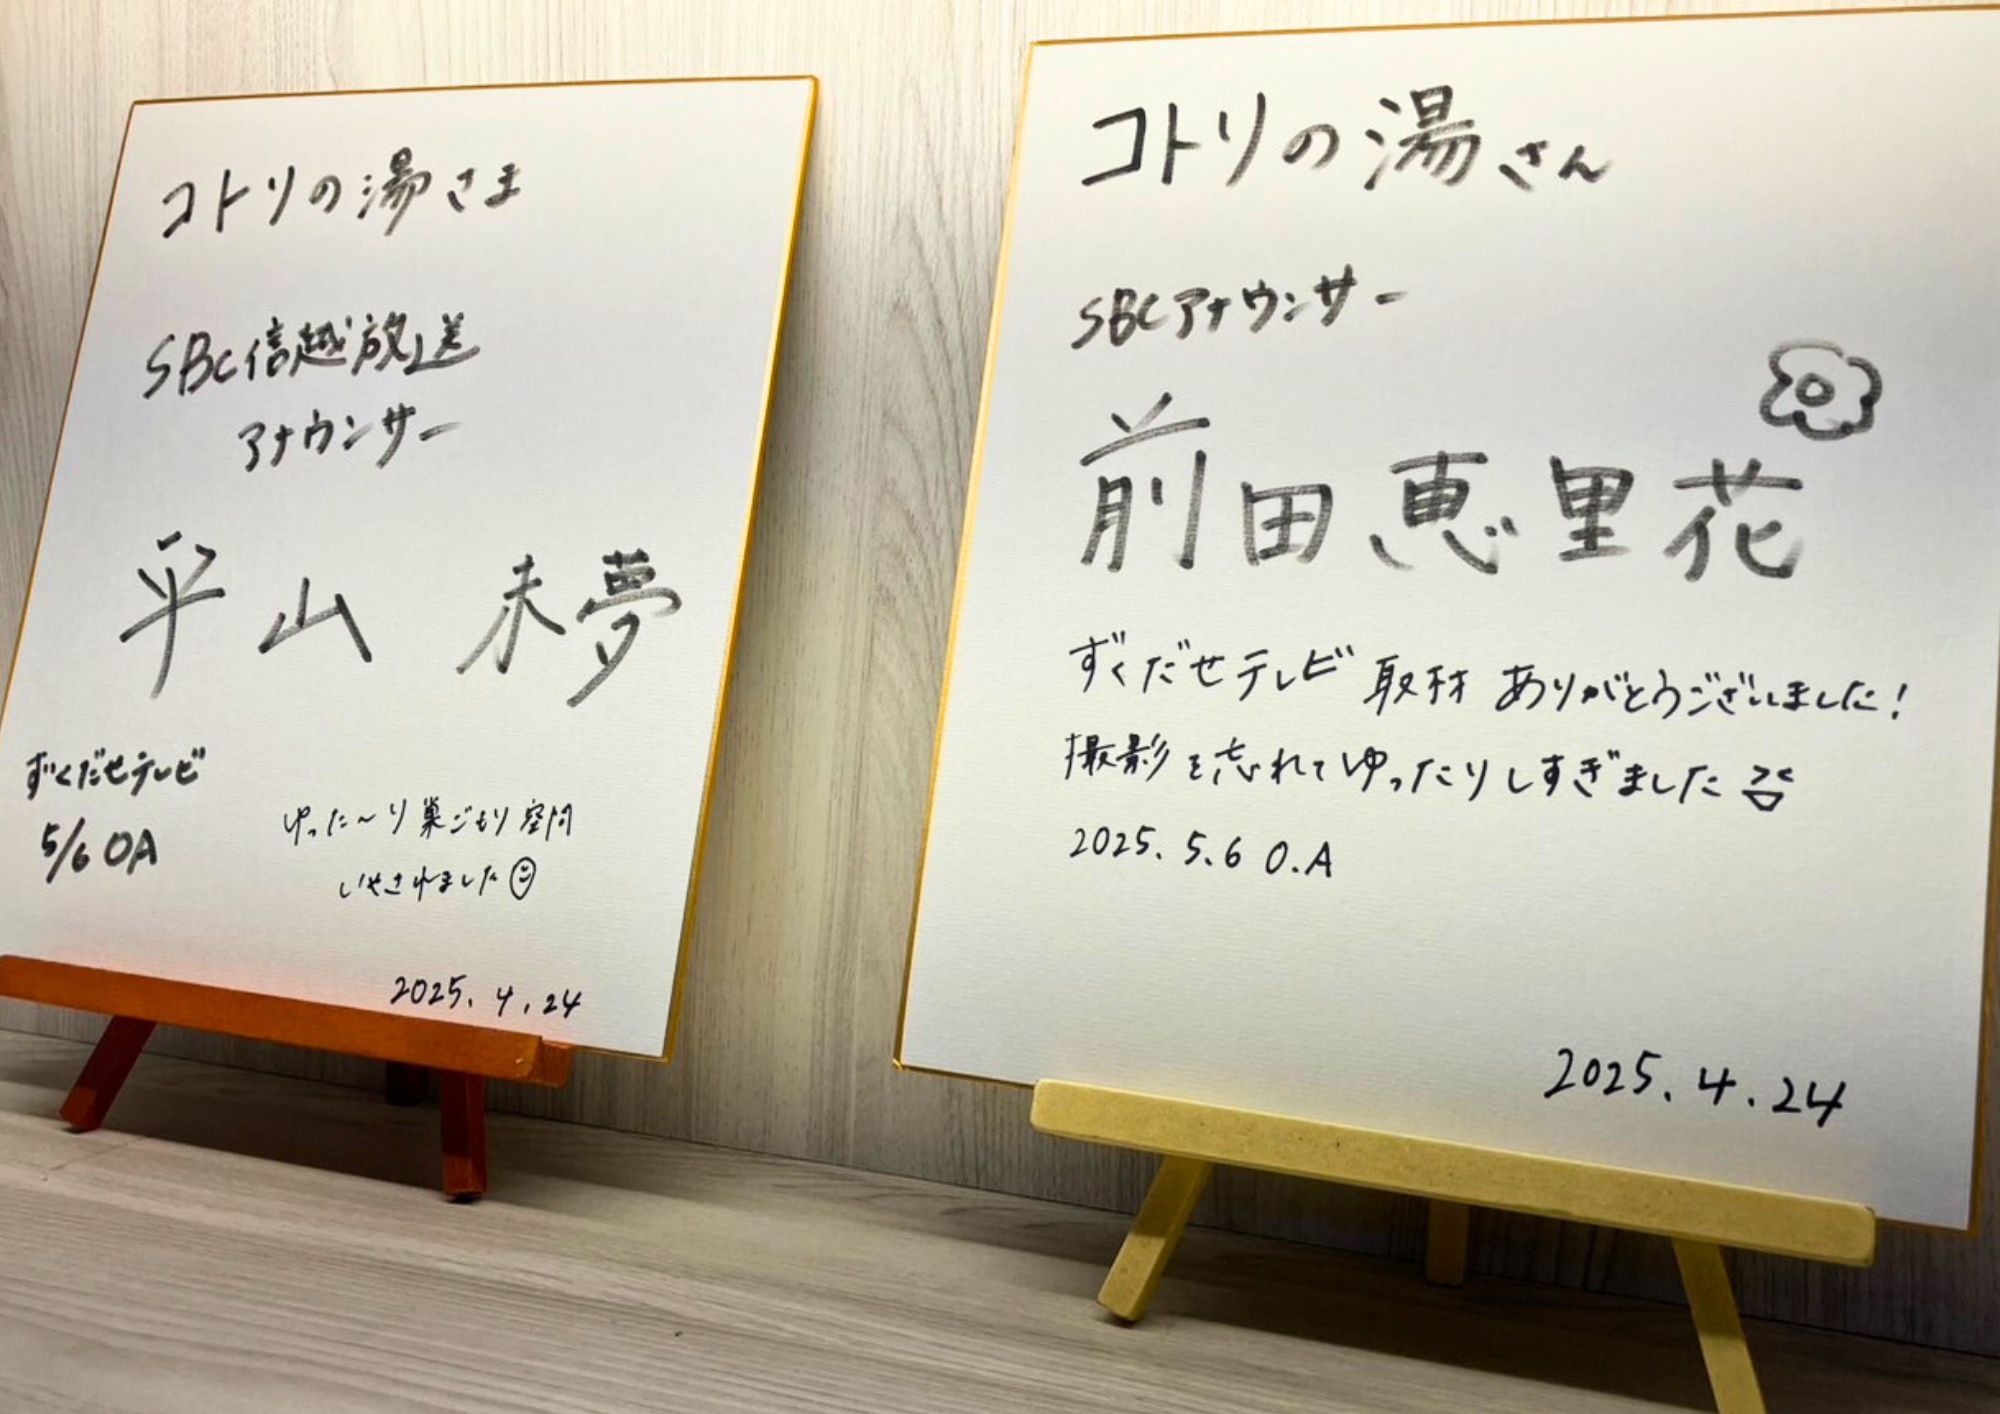 コトリの湯さま
SBC信越放送
アナウンサー
平山 未夢
ずくだせテレビ
5/6 OA
ゆった〜り巣ごもり空間
いやされました
2025.4.24
コトリの湯さん
SBCアナウンサー
前田恵里花
ずくだせテレビ 取材 ありがとうございました!
撮影を忘れてゆったりしすぎました
2025.5.6 O.A
2025.4.24